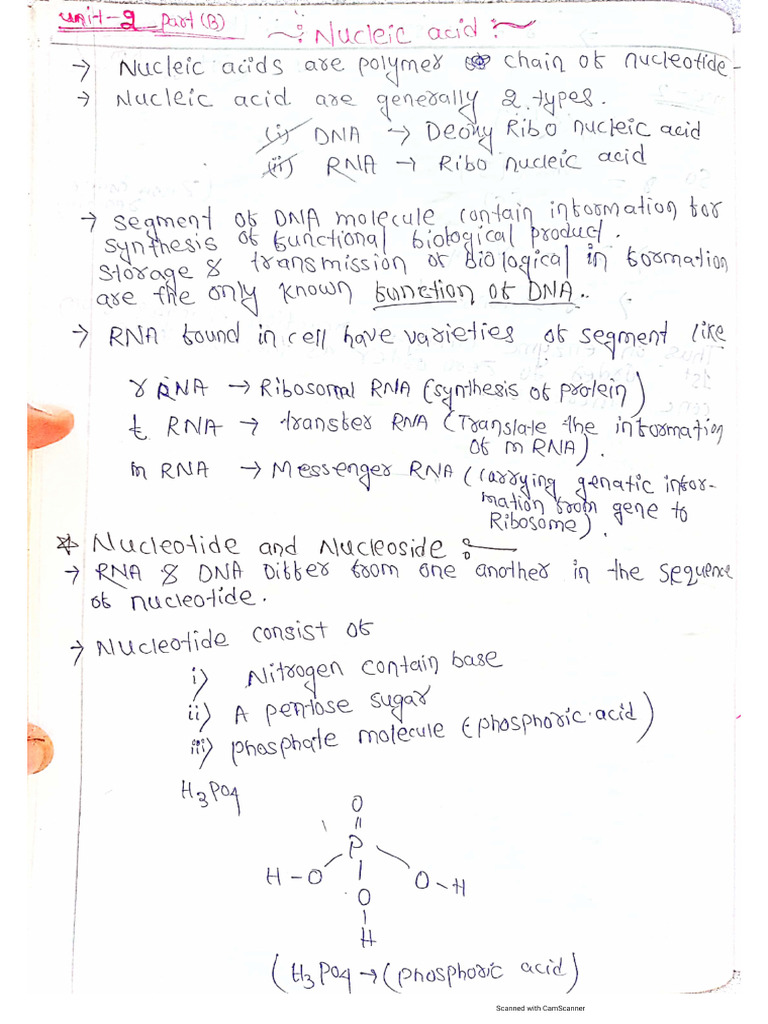 Unit-2 Part (B)
~: Nucleic acid :~
→ Nucleic acids are polymer chain of nucleotide-
→ Nucleic acid are generally 2 types.
(i) DNA → Deoxy Ribo nucleic acid
(ii) RNA → Ribo nucleic acid
→ Segment of DNA molecule contain information for
synthesis of functional biological product.
Storage & transmission of biological in formation
are the only known function of DNA..
→ RNA found in cell have varieties of segment like
r RNA → Ribosomal RNA (synthesis of protein)
t RNA → transfer RNA (Translate the information
of m RNA).
m RNA → Messenger RNA (Carrying genatic infor-
mation from gene to
Ribosome).
* Nucleotide and Nucleoside :-
→ RNA & DNA Differ from one another in the sequence
of nucleotide.
→ Nucleotide consist of
i) Nitrogen contain base
ii) A pentose sugar
iii) phosphate molecule (phosphoric acid)
H3PO4
O
P
H-O O-H
O
H
(H3PO4 → (phosphoric acid)
Scanned with CamScanner